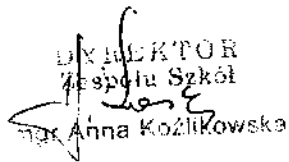 DYREKTOR
Zespołu Szkół
mgr Anna Koźlikowska